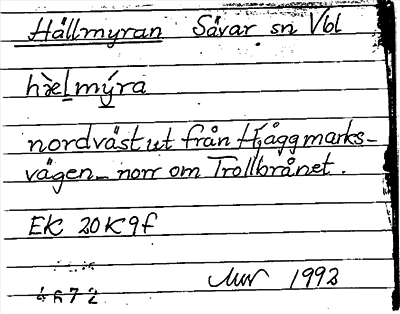 Hällmyran Sävar sn Vbl
hæ̀lmýra
nordväst ut från Häggmarks-
vägen - norr om Trollbrånet.
EK 20K9f
1992
4672